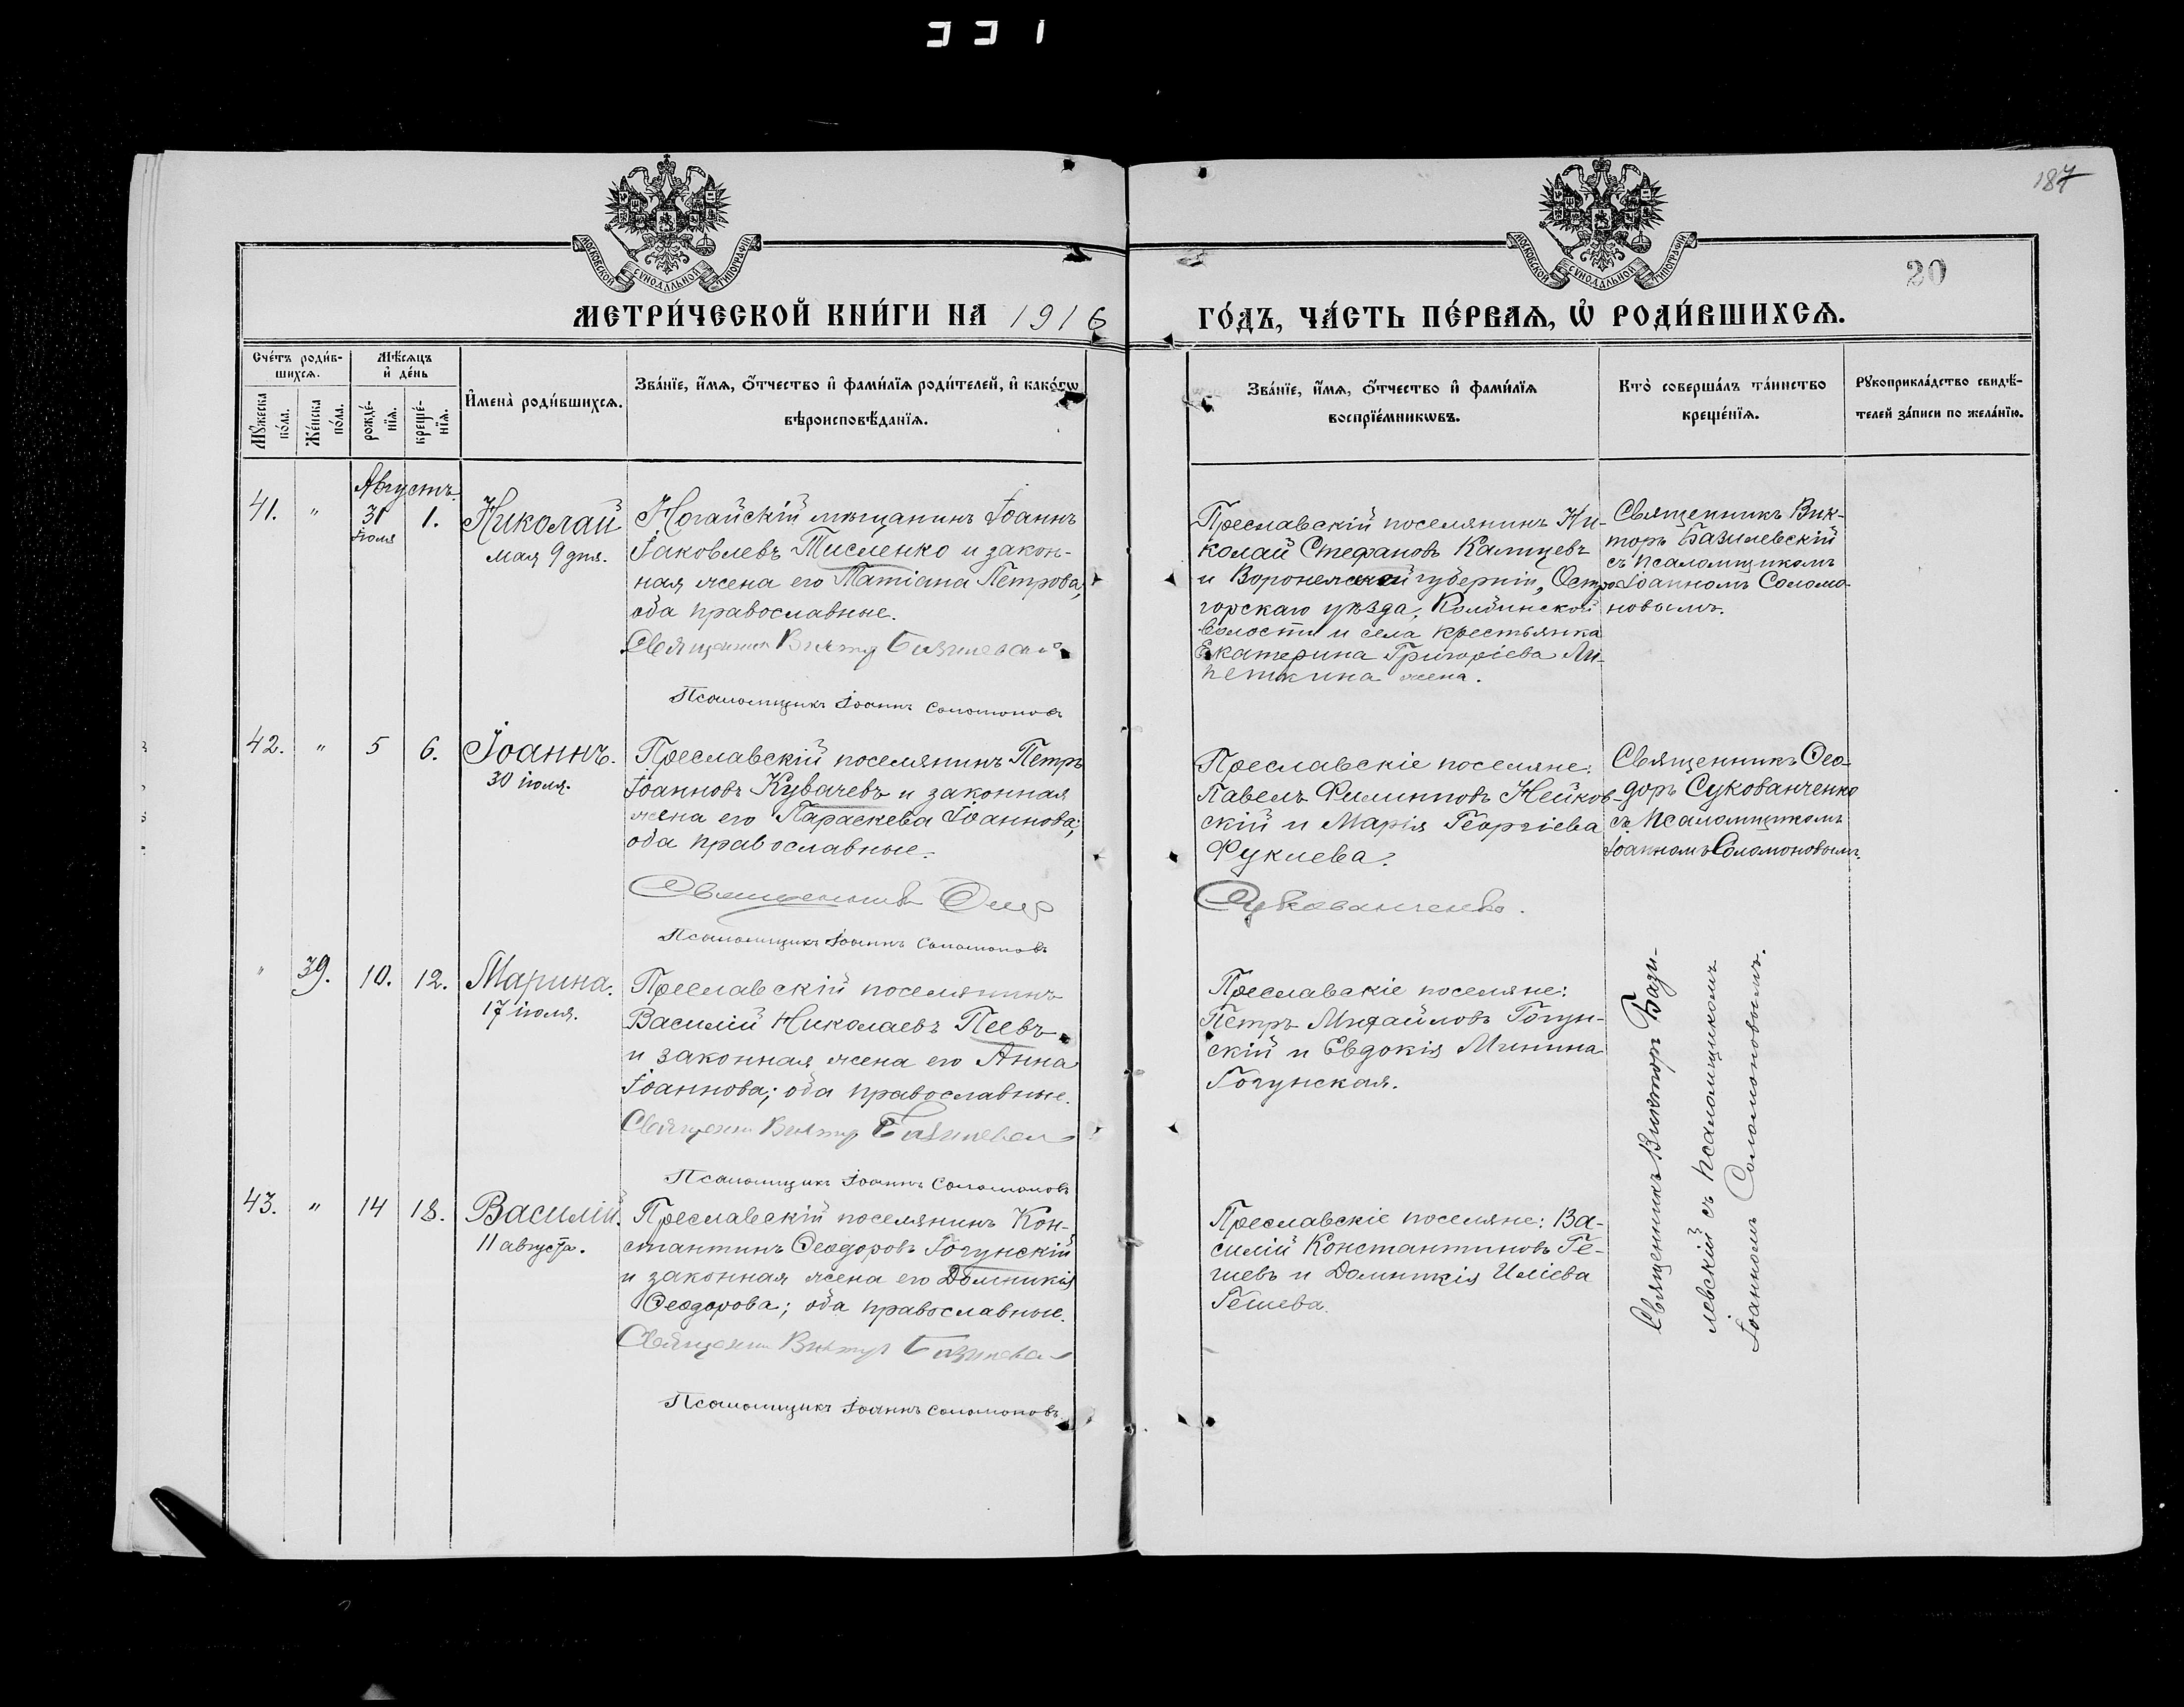 331
187
20
МОСКОВСКОЙ СѴНОДАЛЬНОЙ ТИПОГРАФІИ
МОСКОВСКОЙ СѴНОДАЛЬНОЙ ТИПОГРАФІИ
МЕТРИ́ЧЕСКОЙ КНИ́ГИ НА 1916 ГО́ДЪ, ЧА́СТЬ ПЕ́РВАѦ, Ѡ҆ РОДИ́ВШИХСѦ.
Сче́тъ роди́в-
шихсѧ.
Мꙋ́жеска по́ла.
Же́нска по́ла.
Мѣ́сѧцъ
и҆ де́нь
рожде́-
нїѧ.
креще́-
нїѧ.
И҆мена̀ роди́вшихсѧ.
Зва́нїе, и҆́мѧ, ѻ҆́тчество и҆ фами́лїѧ роди́телей, и҆ како́гѡ
вѣроисповѣ́данїѧ.
Зва́нїе, и҆́мѧ, ѻ҆́тчество и҆ фами́лїѧ
воспрїе́мникѡвъ.
Кто̀ соверша́лъ та́инство
креще́нїѧ.
Рꙋкоприкла́дство свидѣ́-
телей за́писи по жела́нїю.
Августъ.
41. " 31 іюля 1.
Николай
мая 9 дня.
Ногайскій мѣщанинъ Іоаннъ
Іаковлевъ Тисленко и закон-
ная жена его Татіана Петрова,
оба православные.
Священник Виктор Базилевскій
Псаломщикъ Іоаннъ Соломоновъ
Преславскій поселянинъ Ни-
колай Стефановъ Калицевъ
и Воронежской губерніи, Остро-
горскаго уѣзда, Колбинской
волости и села крестьянка
Екатерина Григоріева Ли-
петкина жена.
Священникъ Вик-
торъ Базилевскій
съ псаломщикомъ
Іоанномъ Соломо-
новымъ.
42. " 5 6.
Іоаннъ.
30 іюля.
Преславскій поселянинъ Петръ
Іоанновъ Кувачевъ и законная
жена его Параскева Іоаннова;
оба православные.
Священникъ Ѳеод
Сукованченко.
Псаломщикъ Іоаннъ Соломоновъ
Преславскіе поселяне:
Павелъ Филипповъ Нейков-
скій и Марія Георгіева
Фуклева.
Священникъ Ѳео-
доръ Сукованченко
съ псаломщикомъ
Іоанномъ Соломоновымъ.
" 39. 10. 12.
Марина.
17 іюля.
Преславскій поселянинъ
Василій Николаевъ Пеевъ
и законная жена его Анна
Іоаннова; оба православные.
Священник Виктор Базилевскій
Псаломщикъ Іоаннъ Соломоновъ
Преславскіе поселяне:
Петръ Михайловъ Гогун-
скій и Евдокія Минина
Гогунская.
Священникъ Викторъ Бази-
левскій съ псаломщикомъ
Іоанномъ Соломоновымъ.
43. " 14 18.
Василій.
11 августа.
Преславскій поселянинъ Кон-
стантинъ Ѳеодоровъ Гогунскій
и законная жена его Домникія
Ѳеодорова; оба православные.
Священник Виктор Базилевскій
Псаломщикъ Іоаннъ Соломоновъ.
Преславскіе поселяне: Ва-
силій Константиновъ Ге-
шевъ и Домникія Иліева
Гешева.